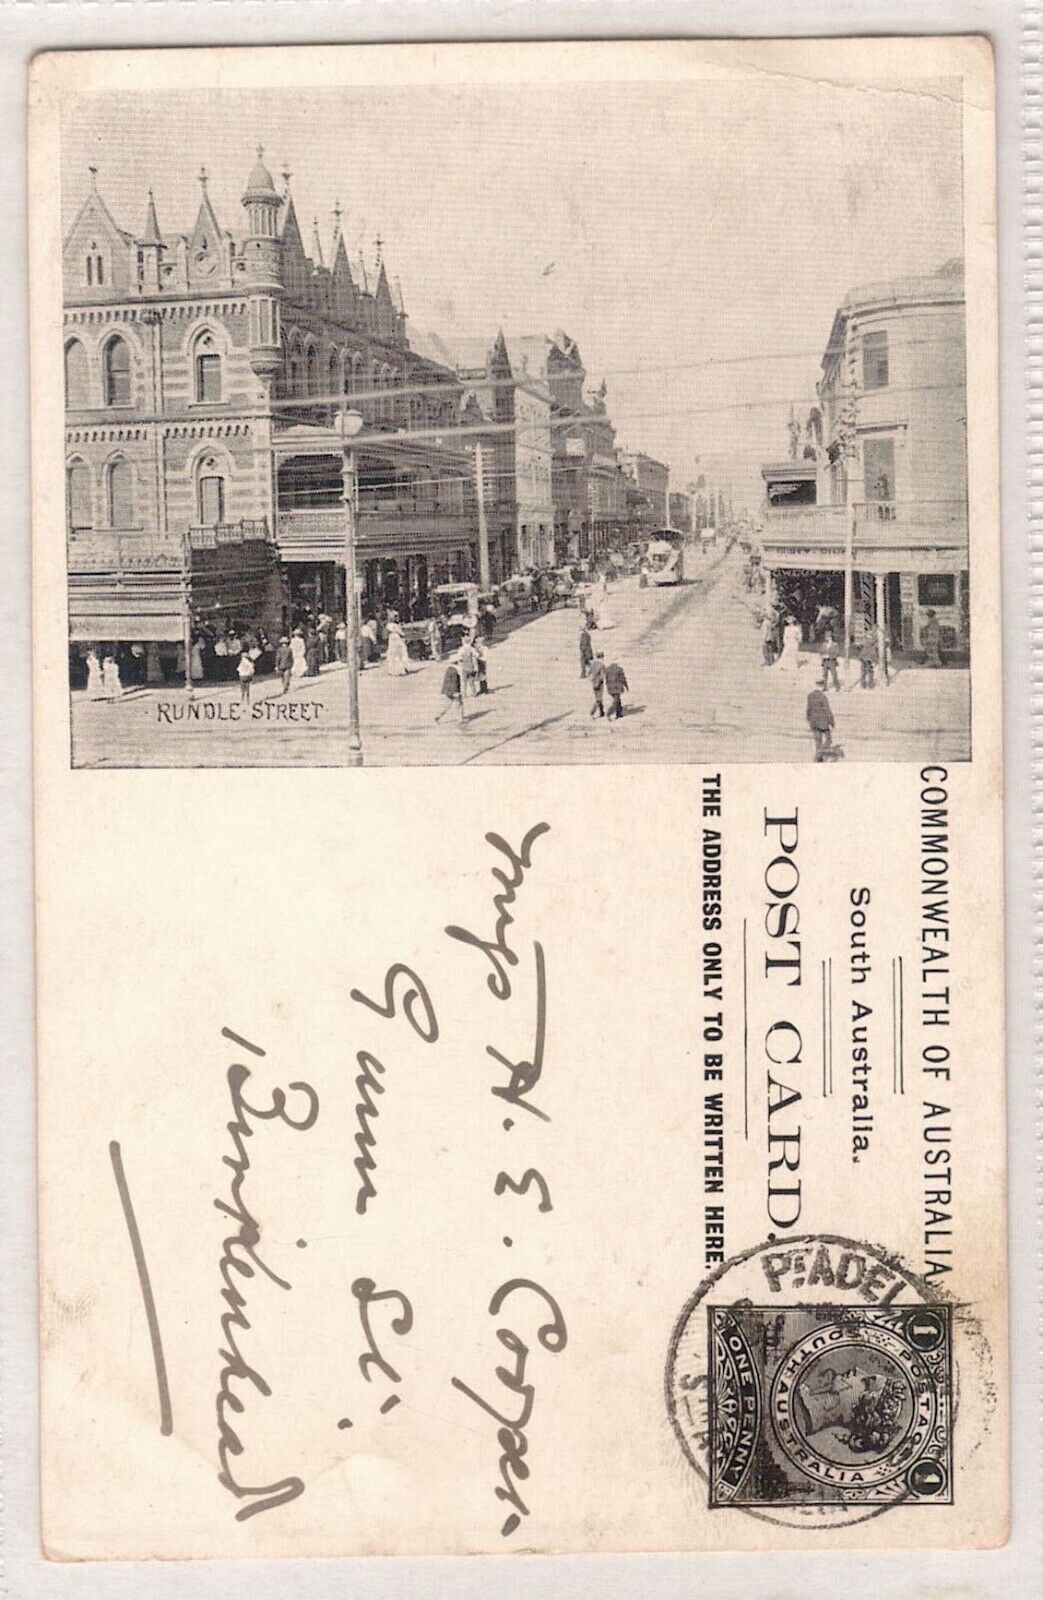 RUNDLE·STREET
COMMONWEALTH OF AUSTRALIA
South Australia.
POST CARD.
THE ADDRESS ONLY TO BE WRITTEN HERE.
Miss H. E. Cooper
Gunn St.
Birkenhead
ADEL
1 POSTAGE 1
SOUTH AUSTRALIA
ONE PENNY